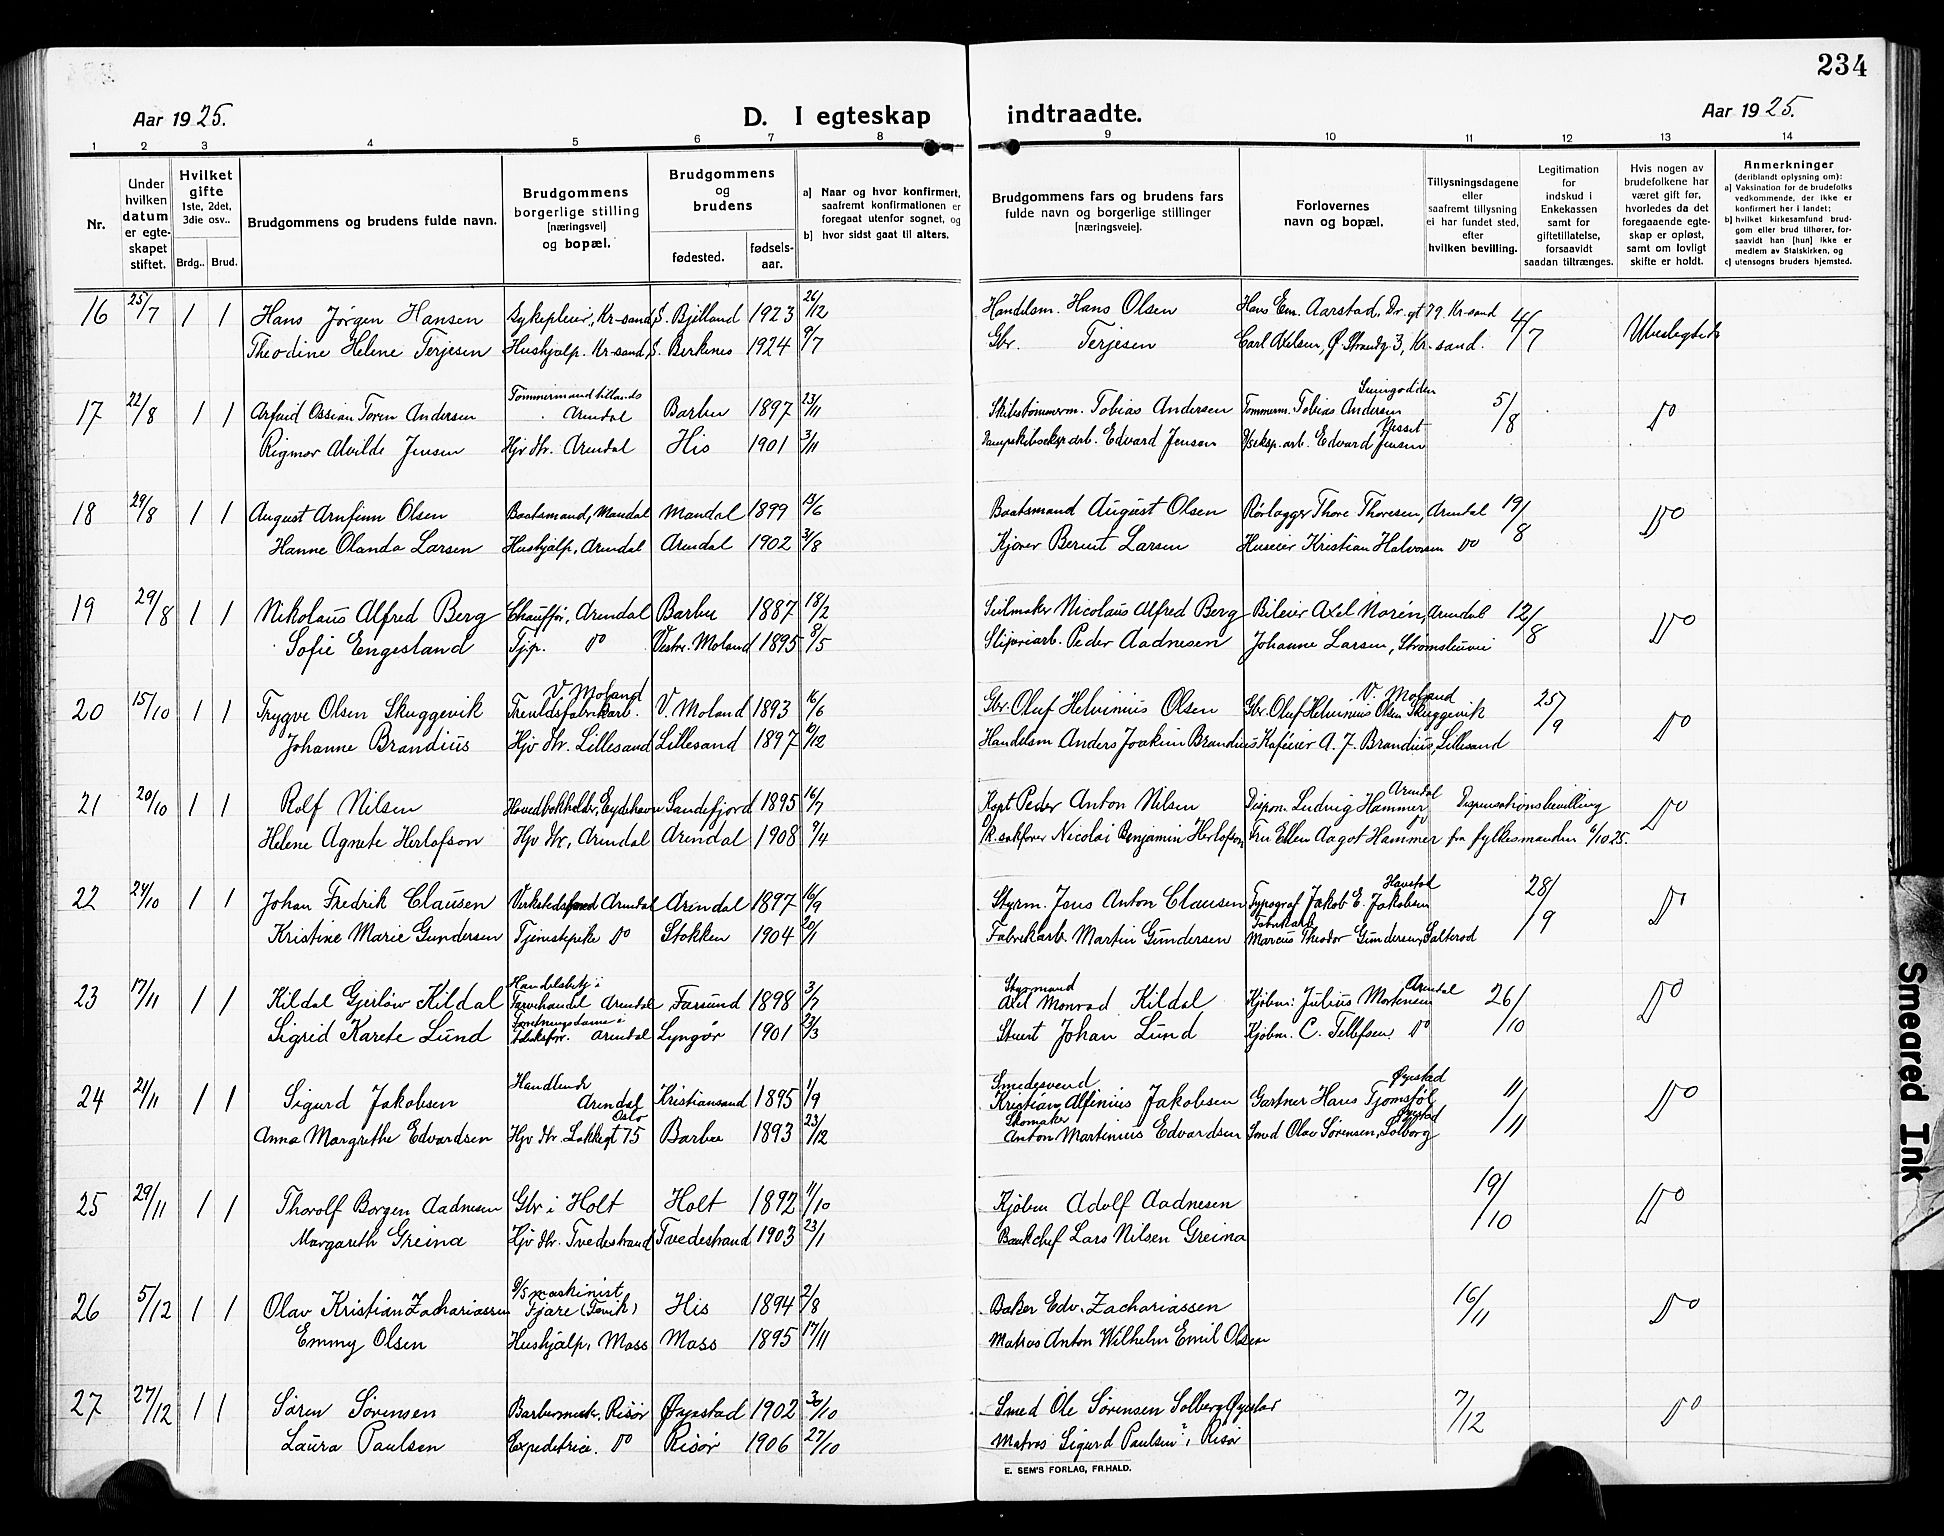 234
Aar 1925.
D. I egteskap indtraadte.
Aar 1925.
1 2 3 4 5 6 7 8 9 10 11 12 13 14
Nr.
Under hvilken datum er egteskapet stiftet.
Hvilket gifte 1ste, 2det, 3die osv..
Brdg.. Brud.
Brudgommens og brudens fulde navn.
Brudgommens borgerlige stilling [næringsvei] og bopæl.
Brudgommens og brudens
fødested. fødsels-aar.
a) Naar og hvor konfirmert, saafremt konfirmationen er foregaat utenfor sognet, og
b) hvor sidst gaat til alters.
Brudgommens fars og brudens fars fulde navn og borgerlige stillinger [næringsveie].
Forlovernes navn og bopæl.
Tillysningsdagene eller saafremt tillysning ei har fundet sted, efter hvilken bevilling.
Legitimation for indskud i Enkekassen samt for giftetillatelse, forsaavidt saadan tiltrænges.
Hvis nogen av brudefolkene har været gift før, hvorledes da det foregaaende egteskap er opløst, samt om lovligt skifte er holdt.
Anmerkninger (deriblandt oplysning om):
a) Vaksination for de brudefolks vedkommende, der ikke er konfirmert her i landet;
b) hvilket kirkesamfund brudgom eller brud tilhører, forsaavidt han [hun] ikke er medlem av Statskirken, og
c) utensogns bruders hjemsted.
16 25/7 1 1 Hans Jørgen Hansen Sykepleier, Kr-sand, S. Bjelland 1923 26/12 Handelsm. Hans Olsen Hans Em. Aarstad, Dr. gt 79 Kr-sand 4/7 Ubeslegtet
Theodine Helene Terjesen Hushjælp. Kr-sand, S. Birkenes 1924 9/7 Gbr. Terjesen Carl Axelsen, Ø. Strandg 3, Kr-sand.
17 22/8 1 1 Arfind Ossian Toren Andersen Tømmermand Arendal Barbu 1897 23/11 Skibstømmerm. Tobias Andersen Tømmerm. Tobias Andersen 5/8 Do
Rigmor Alvilde Jensen Hjv. dtr. Arendal His 1901 3/11 Dampskibseksp.arb. Edvard Jensen D/seksp.arb. Edvard Jensen
18 29/8 1 1 August Arnfinn Olsen Baatsmand, Mandal Mandal 1899 13/6 Baatsmand August Olsen Rørlægger Thore Thoresen, Arendal 19/8 Do
Hanne Olanda Larsen Hushjælp, Arendal Arendal 1902 3/8 Kjører Bernt Larsen Huseier Kristian Halvorsen Do
19 29/8 1 1 Nikolaus Alfred Berg Chauffør, Arendal Barbu 1887 18/2 Seilmaker Nicolaus Alfred Berg Bileier Axel Norén, Arendal 12/8 Do
Sofie Engesland Tjp. Do Vestre. Moland 1895 8/5 Sliperiarb. Peder Aadnesen Johanne Larsen, Strømsbuvei
20 15/10 1 1 Trygve Olsen Skuggevik V. Moland V. Moland 1893 16/6 Gbr. Oluf Helvinius Olsen V. Moland Gbr. Oluf Helvinius Olsen Skuggevik 25/9 Do
Johanne Brandius Hjv. dtr. Lillesand Lillesand 1897 12/12 Handelsm Anders Joakim Brandius Kafeeier A. J. Brandius, Lillesand
21 20/10 1 1 Rolf Nilsen Hovedbokholder, Eydehavn Sandefjord 1895 16/7 Kapt Peder Anton Nilsen Dispon. Ludvig Hammer Arendal Dispensationsbevilling Do
Helene Agnete Herlofson Hjv dtr, Arendal Arendal 1908 9/4 O.R.sakfører Nicolai Benjamin Herlofson Fru Ellen Aagot Hammer Do fra fylkesmanden 6/10 25.
22 24/10 1 1 Johan Fredrik Clausen Arendal Arendal 1897 16/9 Styrm. Jens Anton Clausen Typograf Jakob E. Jakobsen Havstøl 28/9 Do
Kristine Marie Gundersen Tjenestepike Do Stokken 1904 20/1 Fabrikarb. Martin Gundersen Fabrikarb Marcus Theodor Gundersen, Salterød
23 17/11 1 1 Kildal Gjerløw Kildal Handelsbetj i Farvehandel Arendal Farsund 1898 3/7 Styrmand Axel Monrad Kildal Kjøbm: Julius Mortensen Arendal 26/10 Do
Sigrid Karete Lund Forretningsdame i Arendal Lyngør 1901 22/3 Stuert Johan Lund Kjøbm. C. Tellefsen. Do
24 21/11 1 1 Sigurd Jakobsen Handlende Arendal Kristiansand 1895 1/9 Smedesvend Kristian Alfinius Jakobsen Gartner Hans Tjomsføl Øyestad 1/11 Do
Anna Margrethe Edvardsen Hjv dtr. Lakkegt 75 Oslo Barbu 1893 23/12 Skomaker Anton Martinius Edvardsen Smed Olav Sørensen, Solborg Øyestad
25 29/11 1 1 Thorolf Borgen Aadnesen Gbr i Holt Holt 1892 11/10 Kjøbm Adolf Aadnesen 19/10 Do
Margareth Greina Hjv dtr. Tvedestrand Tvedestrand 1903 23/1 Bankchef Lars Nilsen Greina
26 5/12 1 1 Olav Kristian Zachariassen D/S maskinist Fjære (Fevik) His 1894 2/8 Baker Edv. Zachariassen 16/11 Do
Emmy Olsen Hushjælp, Moss Moss 1895 17/11 Matros Anton Wilhelm Emil Olsen
27 27/12 1 1 Søren Sørensen Barbermest. Risør Øyestad 1902 30/10 Smed Ole Sørensen Solberg Øyestad 7/12 Do
Laura Paulsen Expeditrice. Do Risør 1906 27/10 Matros Sigurd Paulsen?, Risør
E. SEM'S FORLAG, FR.HALD.
Smeared Ink